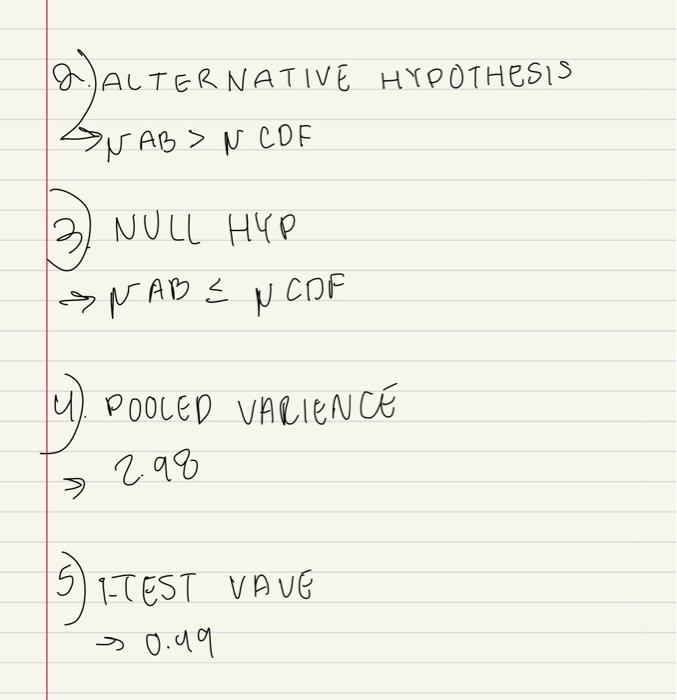 2.) ALTERNATIVE HYPOTHESIS
→ μ AB > μ CDF
3). NULL HYP
→ μ AB ≤ μ CDF
4). POOLED VARIENCE
→ 2.98
5) T-TEST VAVE
→ 0.49